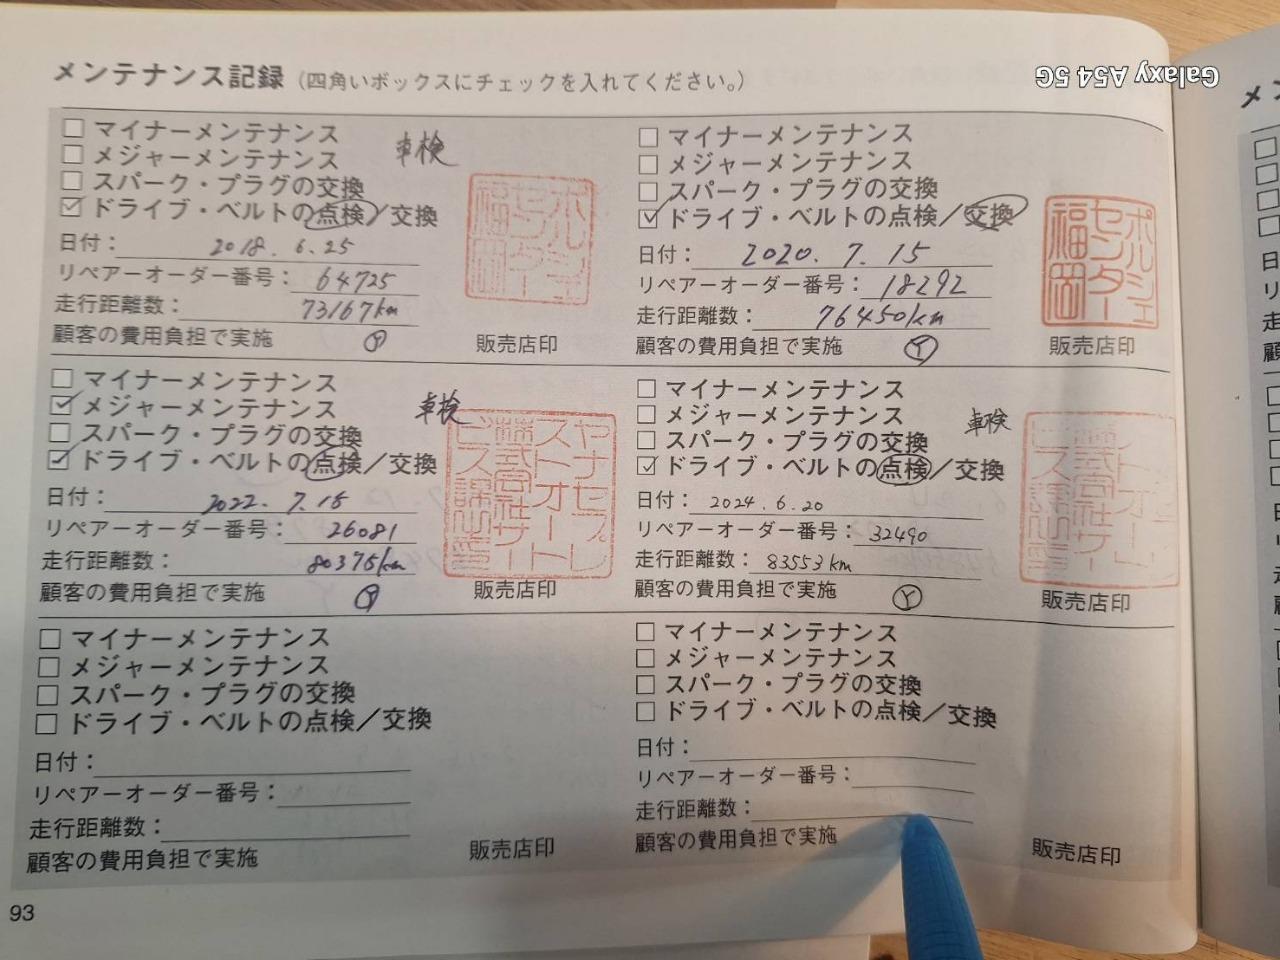 メンテナンス記録（四角いボックスにチェックを入れてください。）
Galaxy A54 5G
マイナーメンテナンス
メジャーメンテナンス
車検
スパーク・プラグの交換
ドライブ・ベルトの点検／交換
日付：2018. 6. 25
リペアーオーダー番号：64725
走行距離数：73167km
顧客の費用負担で実施 Ⓨ
ポルシェセンター福岡
販売店印
マイナーメンテナンス
メジャーメンテナンス
スパーク・プラグの交換
ドライブ・ベルトの点検／交換
日付：2020. 7. 15
リペアーオーダー番号：18292
走行距離数：76450km
顧客の費用負担で実施 Ⓨ
ポルシェセンター福岡
販売店印
マイナーメンテナンス
メジャーメンテナンス
車検
スパーク・プラグの交換
ドライブ・ベルトの点検／交換
日付：2022. 7. 15
リペアーオーダー番号：26081
走行距離数：80375km
顧客の費用負担で実施 Ⓨ
販売店印
マイナーメンテナンス
メジャーメンテナンス
車検
スパーク・プラグの交換
ドライブ・ベルトの点検／交換
日付：2024. 6. 20
リペアーオーダー番号：32490
走行距離数：83553km
顧客の費用負担で実施 Ⓨ
販売店印
マイナーメンテナンス
メジャーメンテナンス
スパーク・プラグの交換
ドライブ・ベルトの点検／交換
日付：
リペアーオーダー番号：
走行距離数：
顧客の費用負担で実施
販売店印
マイナーメンテナンス
メジャーメンテナンス
スパーク・プラグの交換
ドライブ・ベルトの点検／交換
日付：
リペアーオーダー番号：
走行距離数：
顧客の費用負担で実施
販売店印
93